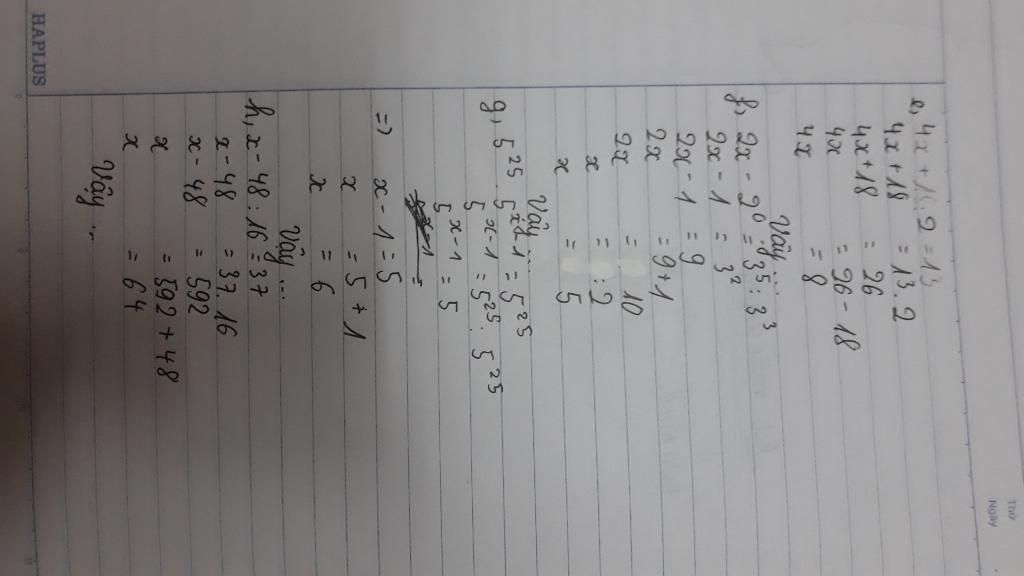 Thứ
Ngày
e, 4x + 18 : 2 = 13
4x + 18 = 13 . 2
4x + 18 = 26
4x = 26 - 18
4x = 8
Vậy ...
f, 2x - 2⁰ = 3⁵ : 3³
2x - 1 = 3²
2x - 1 = 9
2x = 9 + 1
2x = 10
x = : 2
x = 5
Vậy ...
g, 5²⁵ . 5ˣ⁻¹ = 5²⁵
5ˣ⁻¹ = 5²⁵ : 5²⁵
5ˣ⁻¹ = 5
=> x - 1 = 5
x = 5 + 1
x = 6
Vậy ...
h, x - 48 : 16 = 37
x - 48 = 37 . 16
x - 48 = 592
x = 592 + 48
x = 64
Vậy ...
HAPLUS